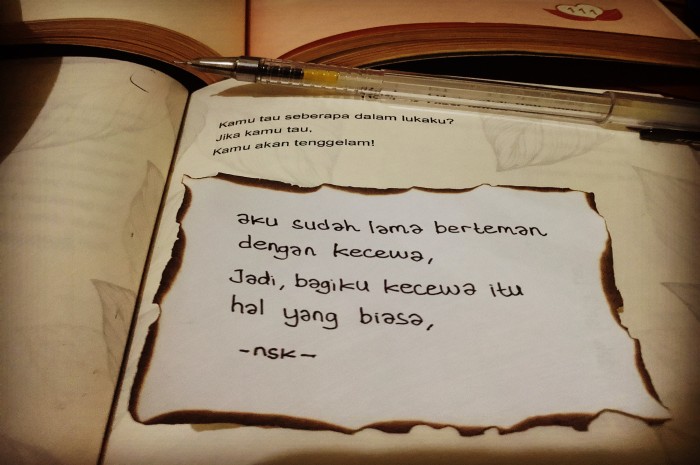 111
Kamu tau seberapa dalam lukaku?
Jika kamu tau,
Kamu akan tenggelam!
aku sudah lama berteman
dengan kecewa,
Jadi, bagiku kecewa itu
hal yang biasa,
-nsk-